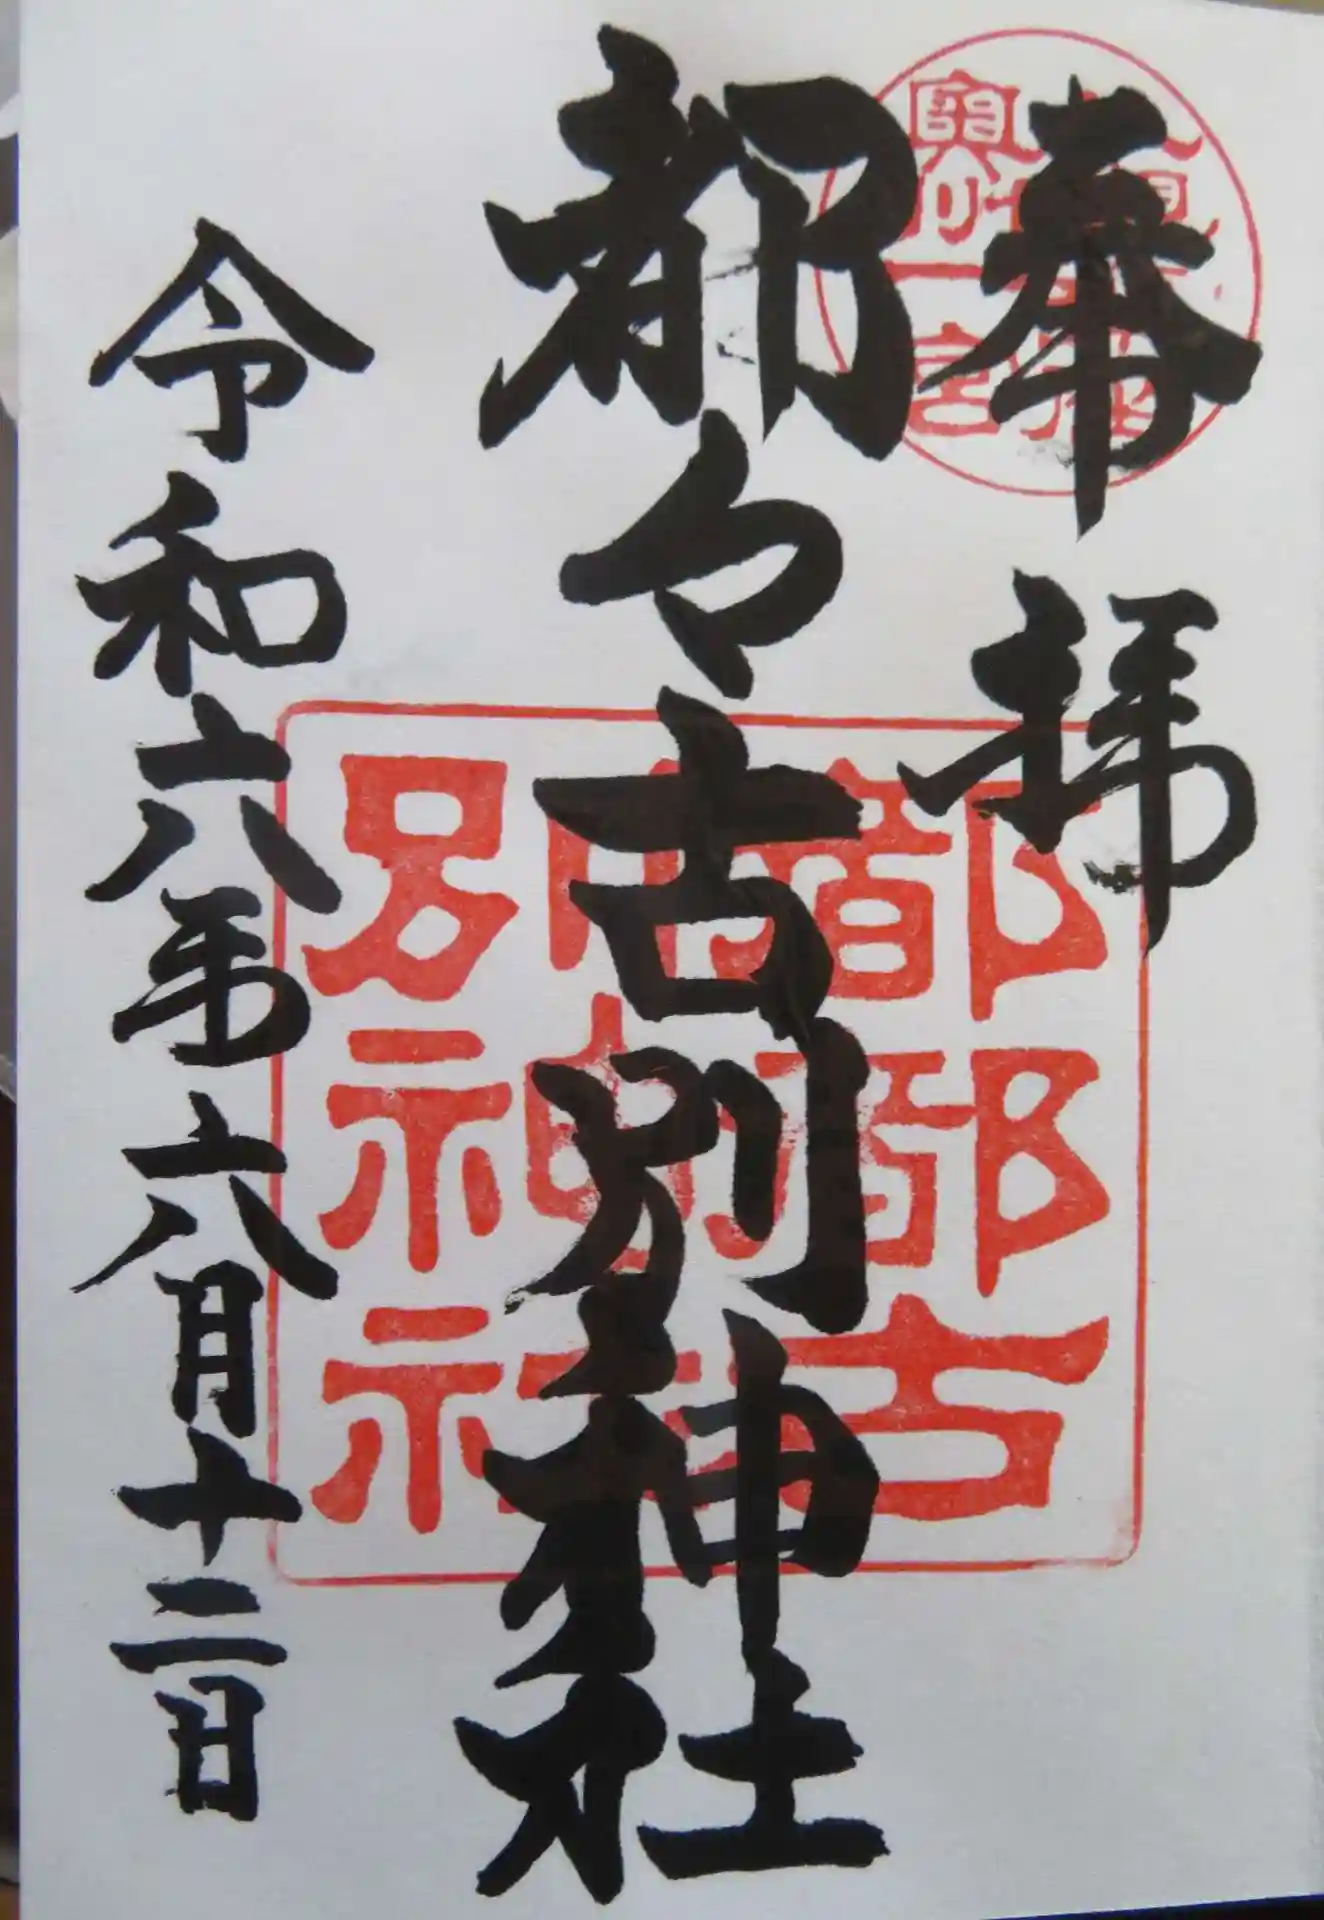 奉拝
奥州一宮
都々古別神社
都都古
別神社
令和六年六月十二日